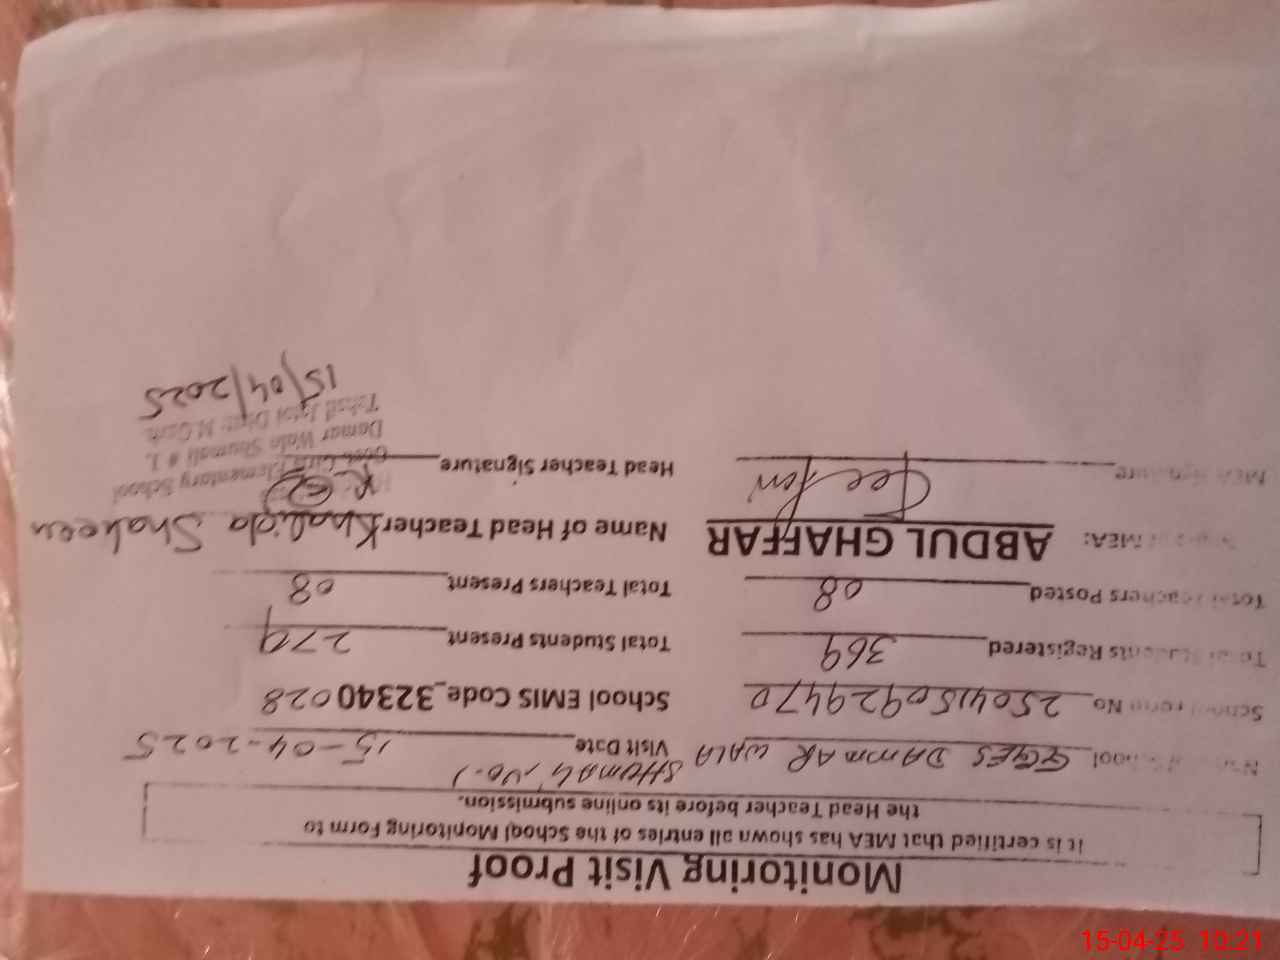 Monitoring Visit Proof
it is certified that MEA has shown all entries of the School Monitoring Form to
the Head Teacher before its online submission.
Name of School GGES DAMMAR WALA SHUMALI No.1 Visit Date 15-04-2025
School Form No 2504150929470 School EMIS Code_32340028
Total Students Registered 369 Total Students Present 279
Total Teachers Posted 08 Total Teachers Present 08
Name of MEA: ABDUL GHAFFAR Name of Head Teacher Khalida Shaheen
MEA Signature Head Teacher Signature
Govt. Girls Elementary School
Damar Wala Shumali # 1,
Tehsil Jatoi Distt: M.Garh
15/04/2025
15-04-25 10:21